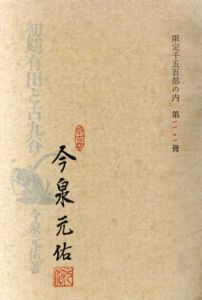 限定千五百部の内 第 冊
今泉元佑
初期有田と古九谷
今泉元佑著